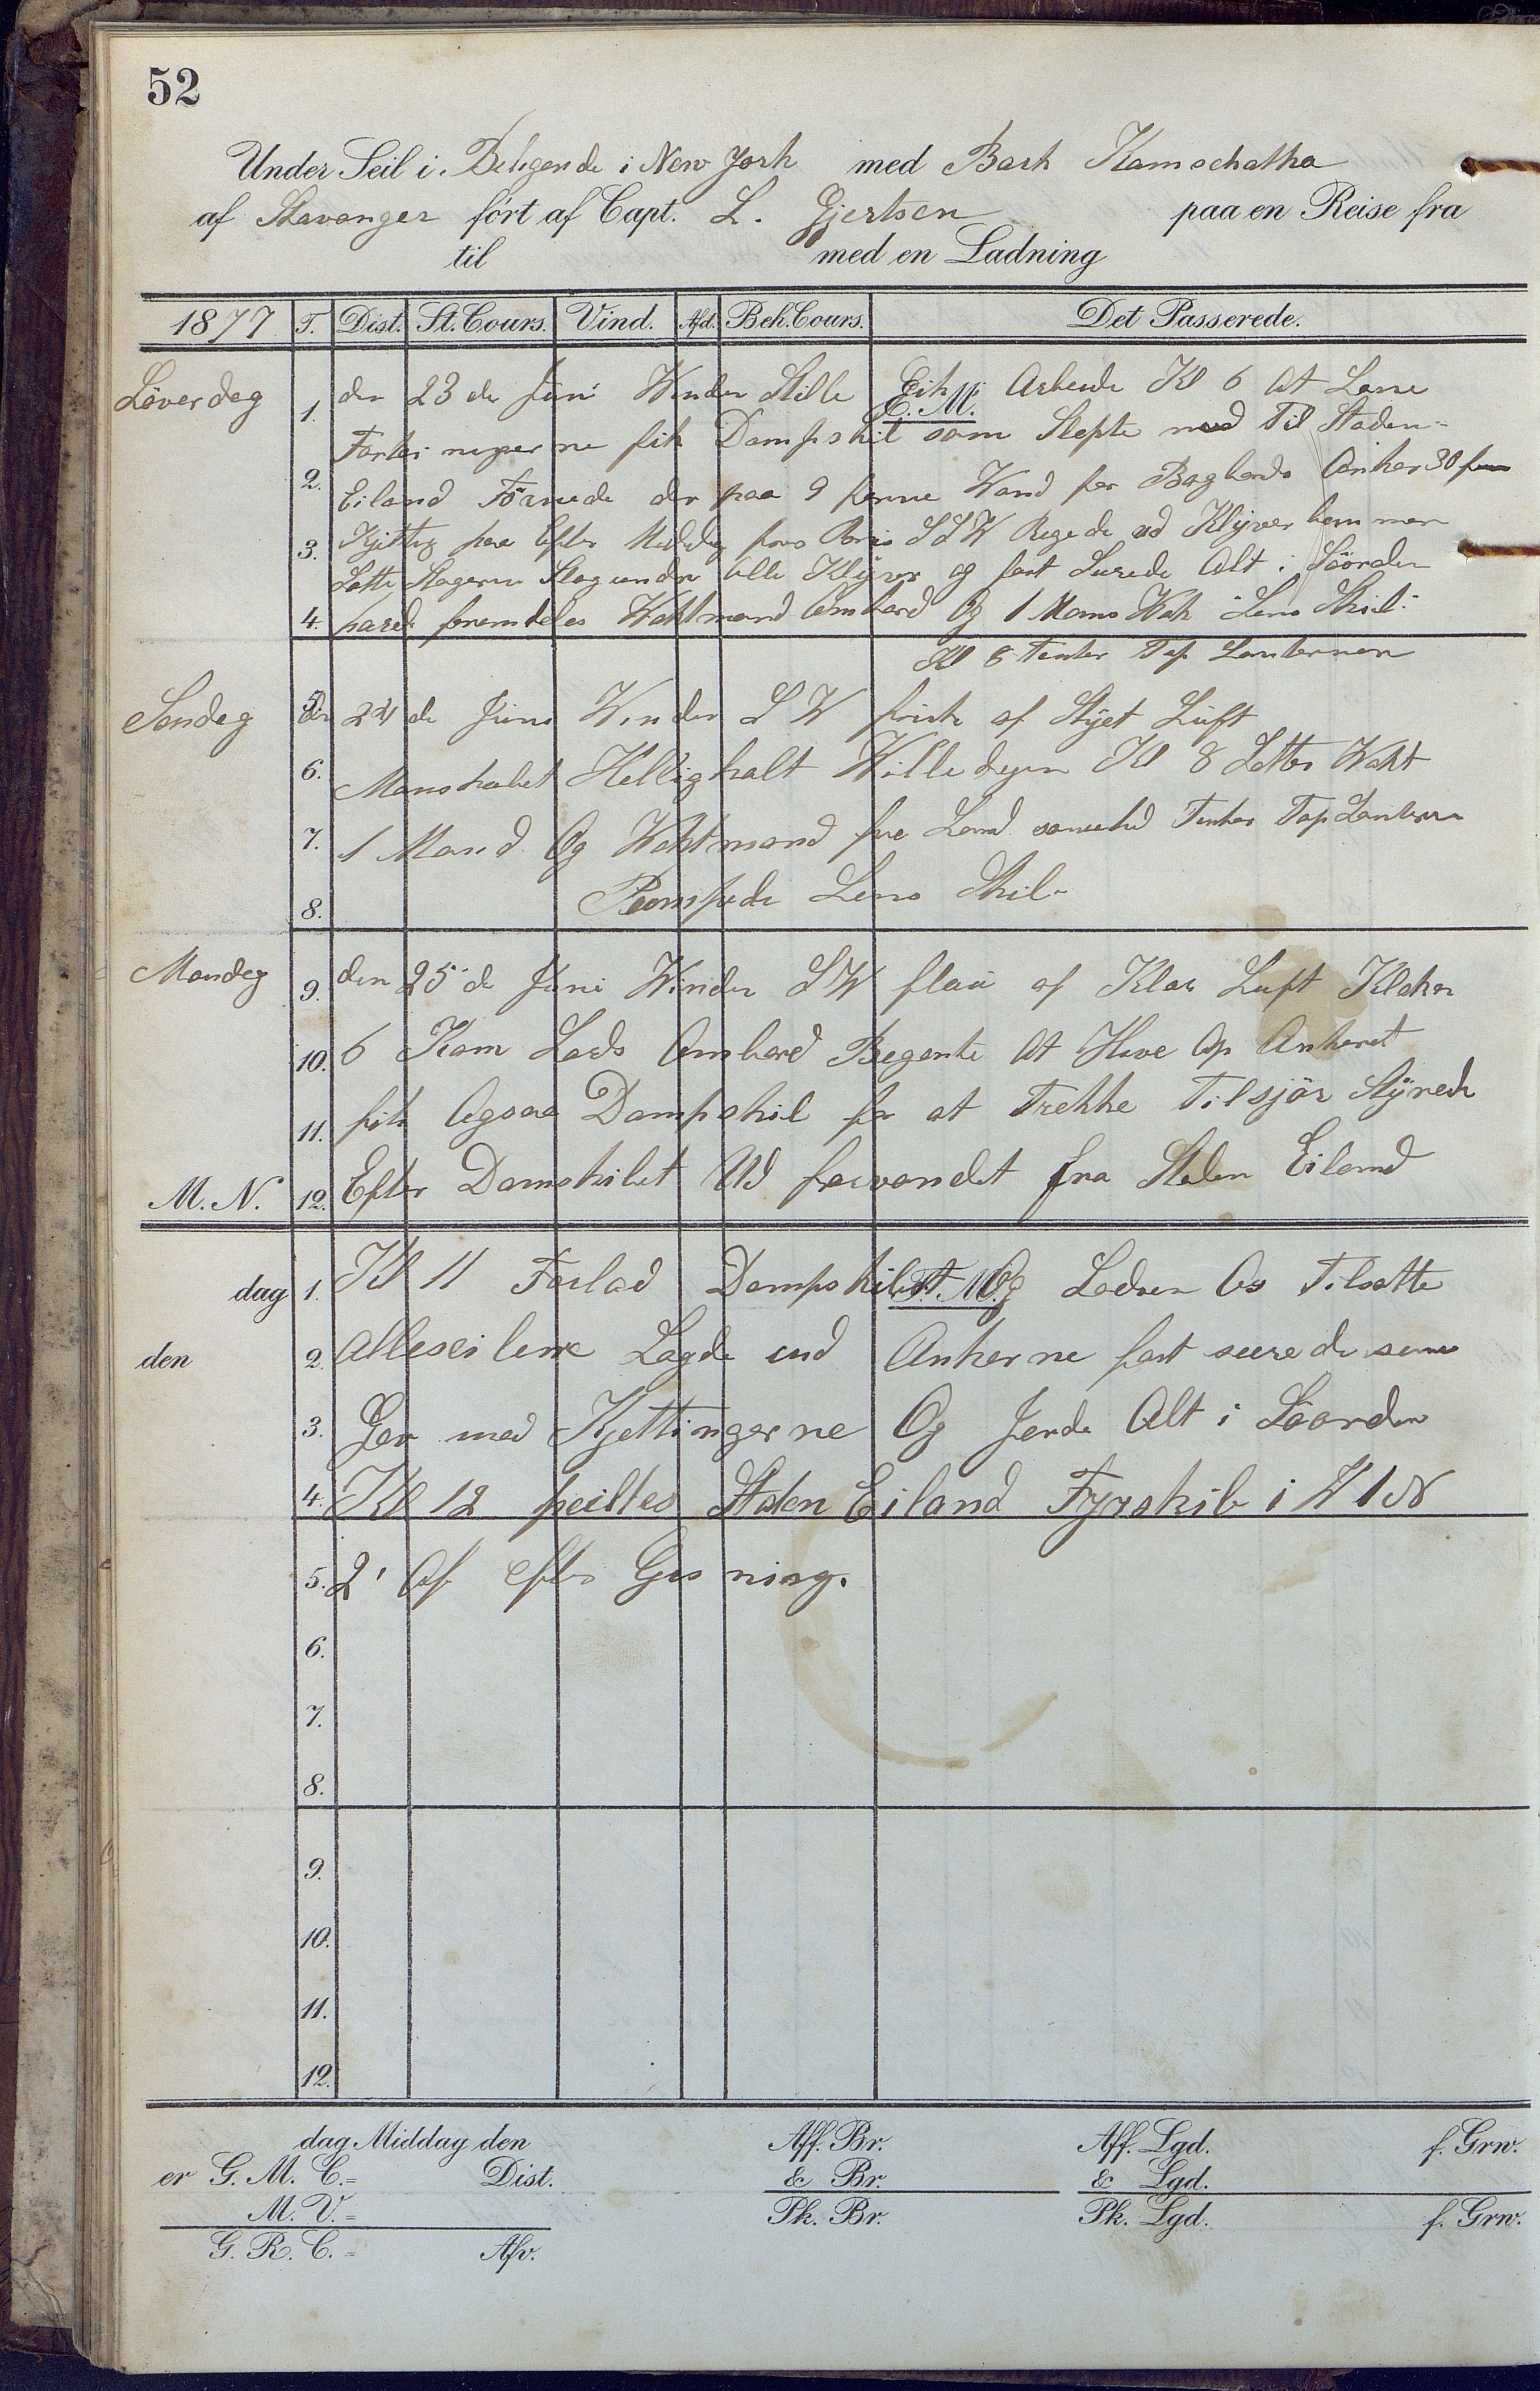 52
Under Seil i. Beligende i New York med Bark Kamschatka
af Stavanger ført af Capt. L. Gjertsen paa en Reise fra
til med en Ladning
1877 T. Dist. St. Cours. Vind. Afd. Beh. Cours. Det Passerede.
E. M.
Löverdag 1. den 23 de Juni Winden Stille Gik i Arbeide Kl 6 At Lose
Fortöiningerne fik Dampskib som Slepte ned Til Staden-
2. Eiland Törnede der paa 9 Wand for Bagbords Anker 30
3. Kjitting paa Efter Middag SSW ud Klyverbommen
Satte Stagerne Alle Klyver og fast Surede Alt i Söorden
4. fremdeles Waktmand Ombord Og 1 Mans Wak Lens Skib.
Kl 8 Tenter Top Lanternen
Søndag 5. den 24 de Juni Winden SW frisk af Skyet Luft
6. Manskabet Helligholt Kl 8 Settes Wakt
7. 1 Mand Og Waktmand fra Land Tentes Top Lanteren
8. Pompede Lens Skib-
Mandag 9. den 25 de Juni Winden SW flau af Klar Luft Klokken
10. 6 Kom Lods Ombord Begente At Hive Op Ankeret
11. fik Ogsaa Dampskib for at Trekke Tilsjös Styrede
M. N. 12. Efter Damskibet Ud farvandet fra Staden Eiland
F. M.
dag 1. Kl 11 Forlod Dampskibet Og Lodsen Os Tilsatte
den 2. alleseilene Lagde ind Ankerne fast surede
3. med Kjettingerne Og Jorde Alt i Söorden
4. Kl 12 peiltes Staden Eiland Fyrskib i W 1 N
5. 2' Af efter Gisning.
6.
7.
8.
9.
10.
11.
12.
dag Middag den Aff. Br. Aff. Lgd. f. Grw.
er G. M. C.= Dist. & Br. & Lgd.
M. V.= Pk. Br. Pk. Lgd. f. Grw.
G. R. C.= Afv.